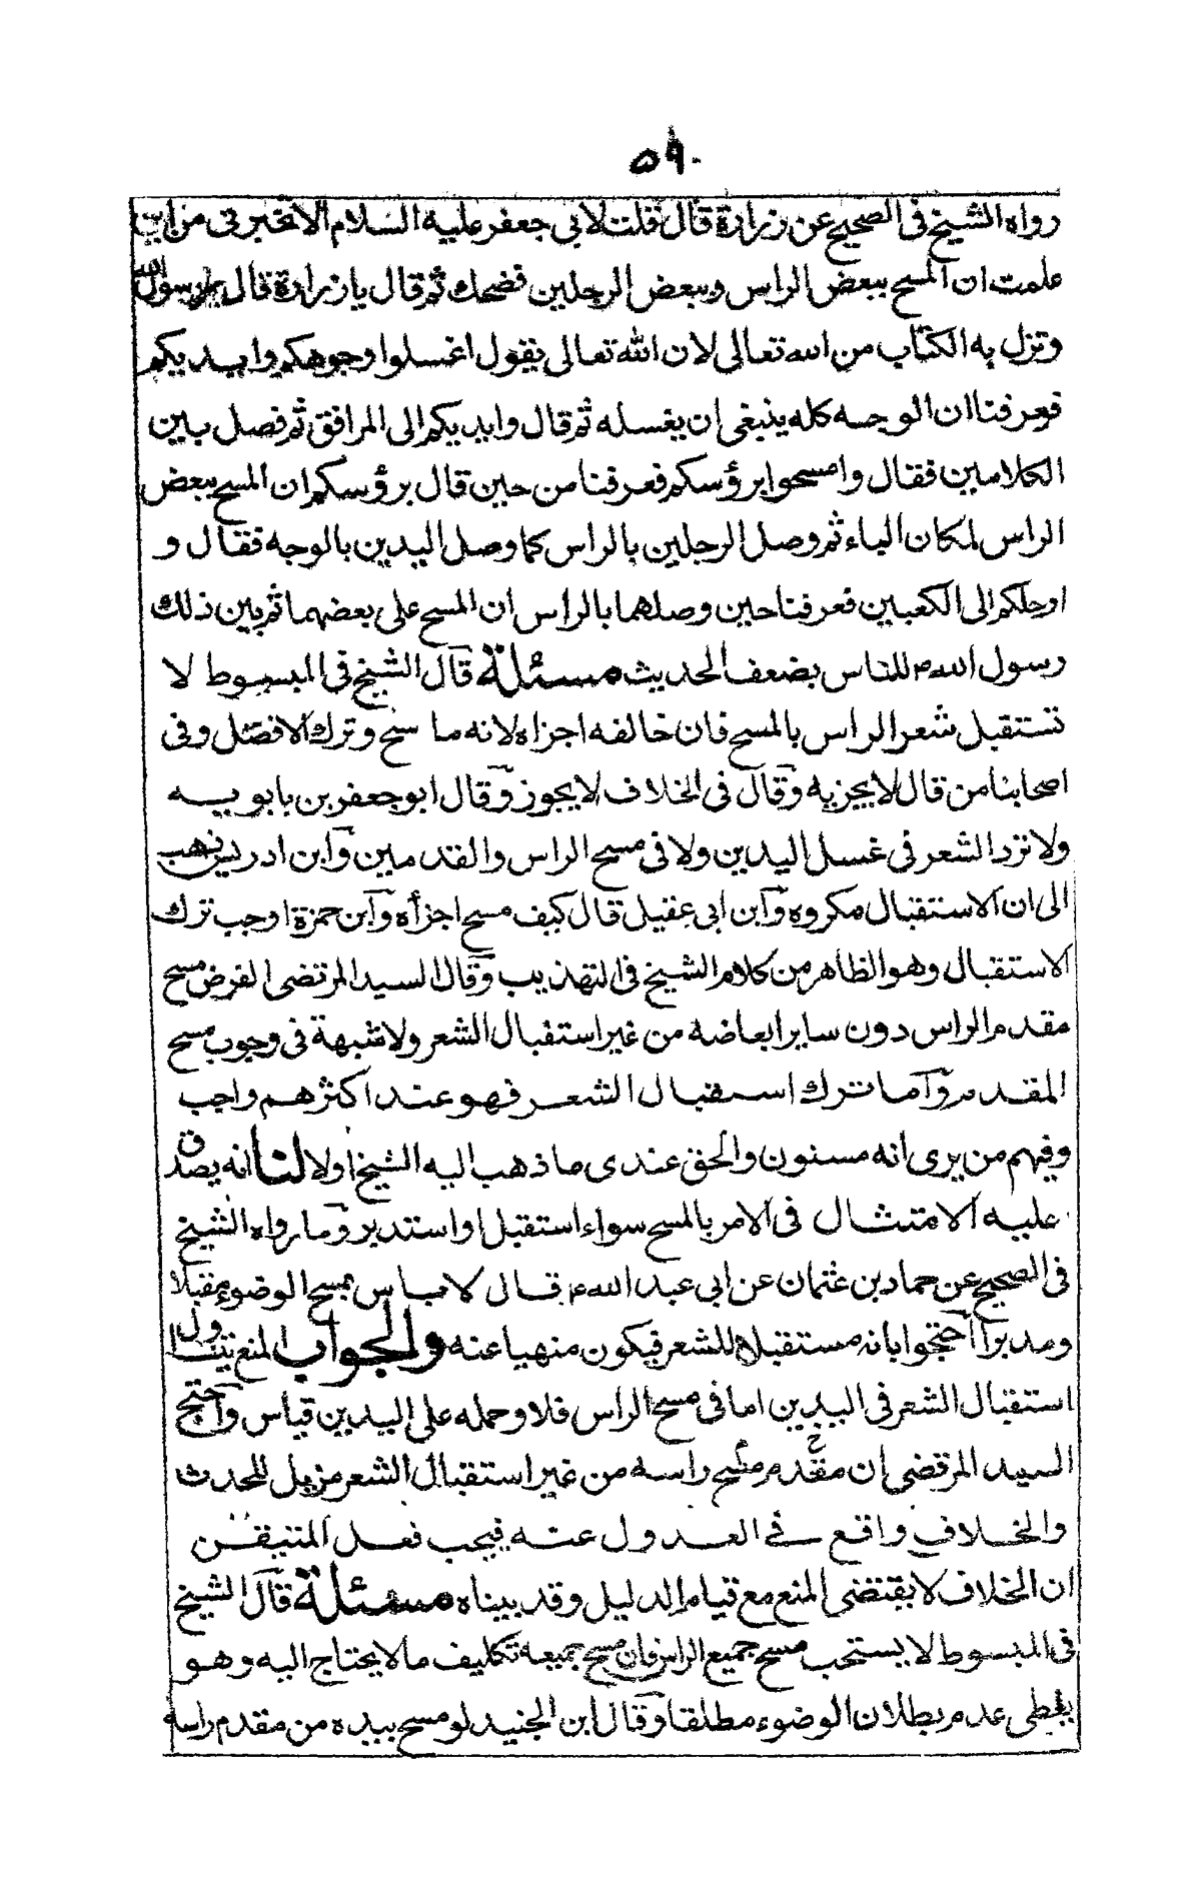 ٥٩٠
رواه الشيخ فى الصحيح عن زرارة قال قلت لابى جعفر عليه السلام الا تخبرنى من اين
علمت ان المسح ببعض الراس وببعض الرجلين فضحك ثم قال يا زرارة قال رسول الله
ونزل به الكتاب من الله تعالى لان الله تعالى يقول اغسلوا وجوهكم وايديكم
فعرفنا ان الوجه كله ينبغى ان يغسله ثم قال وايديكم الى المرافق ثم فصل بين
الكلامين فقال وامسحوا برؤسكم فعرفنا من حين قال برؤسكم ان المسح ببعض
الراس لمكان الباء ثم وصل الرجلين بالراس كما وصل اليدين بالوجه فقال و
ارجلكم الى الكعبين فعرفنا حين وصلهما بالراس ان المسح على بعضهما ثم بين ذلك
رسول الله م للناس بضعف الحديث مسئلة قال الشيخ فى المبسوط لا
تستقبل شعر الراس بالمسح فان خالفه اجزاه لانه ما سح وترك الافضل وفى
اصحابنا من قال لا يجزيه وقال فى الخلاف لا يجوز وقال ابو جعفر بن بابويه
ولا ترد الشعر فى غسل اليدين ولا فى مسح الراس والقدمين وابن ادريس ذهب
الى ان الاستقبال مكروه وابن ابى عقيل قال كيف مسح اجزأه وابن حمزة اوجب ترك
الاستقبال وهو الظاهر من كلام الشيخ فى التهذيب وقال السيد المرتضى الفرض مسح
مقدم الراس دون ساير ابعاضه من غير استقبال الشعر ولا شبهة فى وجوب مسح
المقدم واما ترك استقبال الشعر فهو عند اكثرهم واجب
وفيهم من يرى انه مسنون والحق عندى ما ذهب اليه الشيخ اولا لنا انه يصدق
عليه الامتثال فى الامر بالمسح سواء استقبل او استدبر وما رواه الشيخ
فى الصحيح عن حماد بن عثمان عن ابى عبد الله م قال لا باس بمسح الوضوء مقبلا
ومدبرا احتجوا بانه مستقبلا للشعر فيكون منهيا عنه والجواب المنع يتناول
استقبال الشعر فى اليدين اما فى مسح الراس فلا وحمله على اليدين قياس واحتج
السيد المرتضى ان مقدم مسح راسه من غير استقبال الشعر مزيل للحدث
والخلاف واقع فى العدول عنه فيجب فعل المتيقن
ان الخلاف لا يقتضى المنع مع قيام الدليل وقد بيناه مسئلة قال الشيخ
فى المبسوط لا يستحب مسح جميع الراس وان مسح جميعه تكليف ما لا يحتاج اليه وهو
يعطى عدم بطلان الوضوء مطلقا وقال ابن الجنيد لو مسح بيده من مقدم راسه